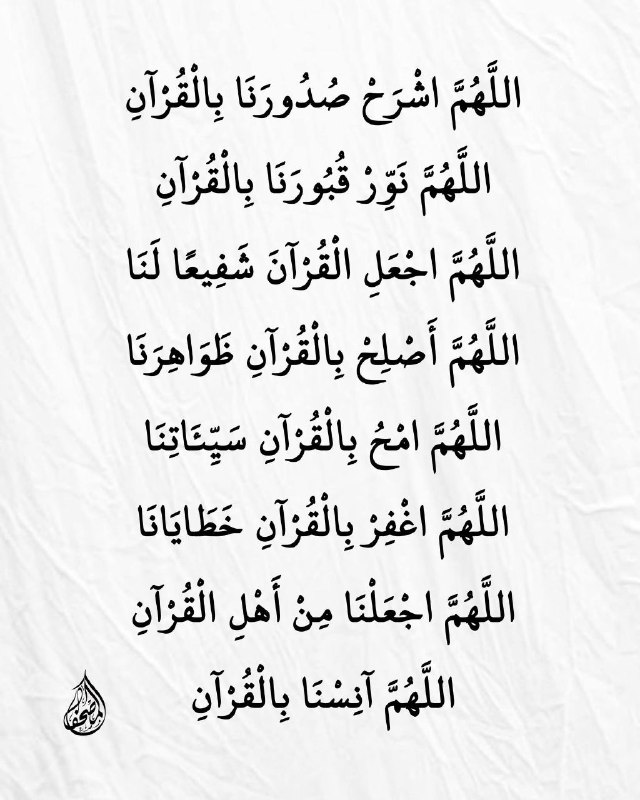 اللَّهُمَّ اشْرَحْ صُدُورَنَا بِالْقُرْآنِ
اللَّهُمَّ نَوِّرْ قُبُورَنَا بِالْقُرْآنِ
اللَّهُمَّ اجْعَلِ الْقُرْآنَ شَفِيعًا لَنَا
اللَّهُمَّ أَصْلِحْ بِالْقُرْآنِ ظَوَاهِرَنَا
اللَّهُمَّ امْحُ بِالْقُرْآنِ سَيِّئَاتِنَا
اللَّهُمَّ اغْفِرْ بِالْقُرْآنِ خَطَايَانَا
اللَّهُمَّ اجْعَلْنَا مِنْ أَهْلِ الْقُرْآنِ
اللَّهُمَّ آنِسْنَا بِالْقُرْآنِ